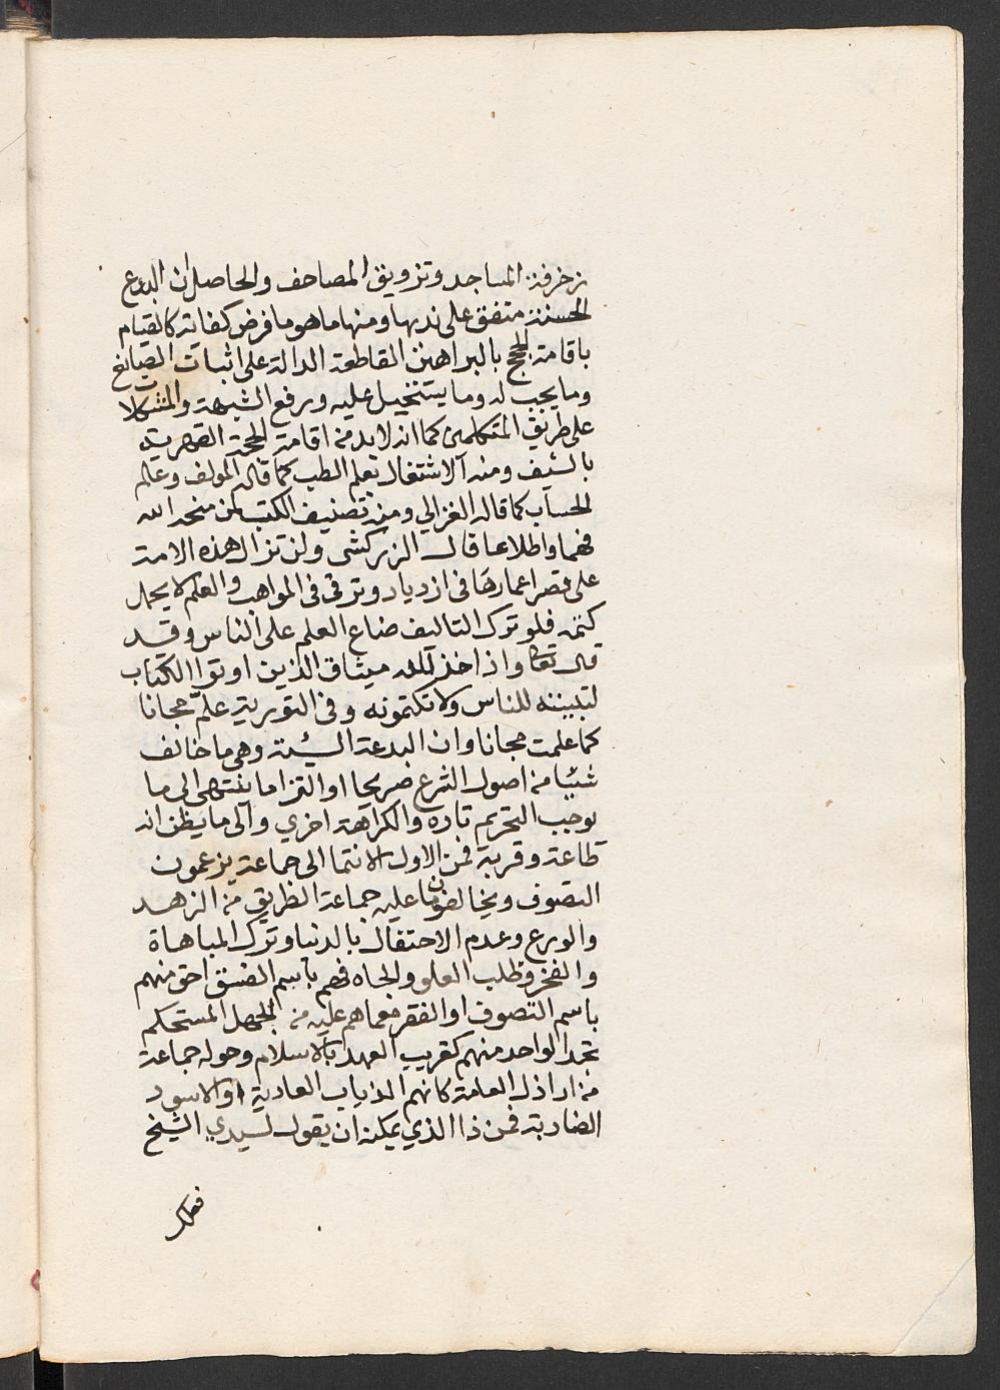 زخرفة المساجد وتزويق المصاحف والحاصل ان البدع
الحسنة متفق على ندبها ومنها ما هو ما فرض كفاية كالقيام
باقامة الحجج بالبراهين القاطعة الدالة على اثبات الصانع
وما يجب له وما يستحيل عليه ورفع الشبهة والمشكلات
على طريق المتكلمين كما انه لا بد من اقامة الحجة القهرية
بالسيف ومنه الاشتغال بعلم الطب كما قاله المولف وعلم
الحساب كما قاله الغزالي ومنه تصنيف الكتب لمن منحه الله
فهما واطلاعا قال الزركشي ولن تزال هذه الامة
على قصر اعمارها في ازدياد وترقي في المواهب والعلم لا يحل
كتمه فلو ترك التاليف ضاع العلم على الناس وقد
قال تعالى واذ اخذ الله ميثاق الذين اوتوا الكتاب
لتبيننه للناس ولا تكتمونه وفي التورية علّم مجانا
كما علمت مجانا وان البدعة السيئة وهي ما خالف
شيئا من اصول الشرع صريحا او التزاما ينتهي الى ما
يوجب التحريم تارة والكراهة اخري والى ما يظن انه
طاعة وقربة فمن الاول الانتما الى جماعة يزعمون
التصوف ويخالفون ما عليه جماعة الطريق من الزهد
والورع وعدم الاحتفال بالدنيا وترك المباهاة
والفخر وطلب العلو والجاه فهم باسم الفسق احق منهم
باسم التصوف او الفقر فما هم عليه من الجهل المستحكم
تجد الواحد منهم كقريب العهد بالاسلام وحوله جماعة
من اراذل العامة كانهم الذياب العادية او الاسود
الضارية فمن ذا الذي يمكنه ان يقول لسيدي الشيخ